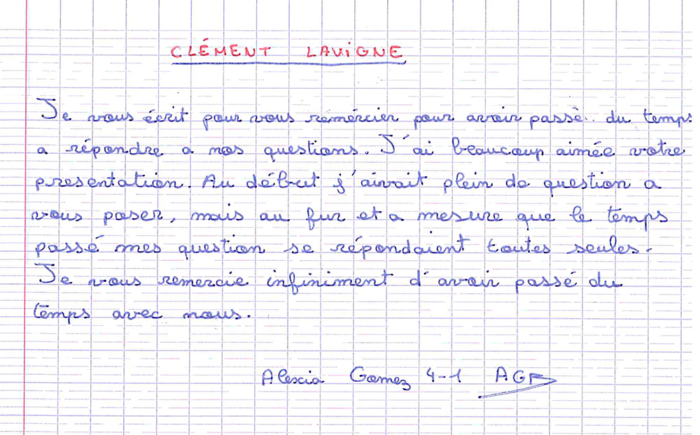 CLÉMENT LAViGNE
Je vous écrit pour vous remércier pour avoir passé du temps
a répondre a nos questions. J'ai beaucoup aimée votre
presentation. Au début j'aivait plein de question a
vous poser, mais au fur et a mesure que le temps
passé mes question se répondaient toutes seules.
Je vous remercie infiniment d'avoir passé du
temps avec nous.
Alexia Gomez 4-1 AGF